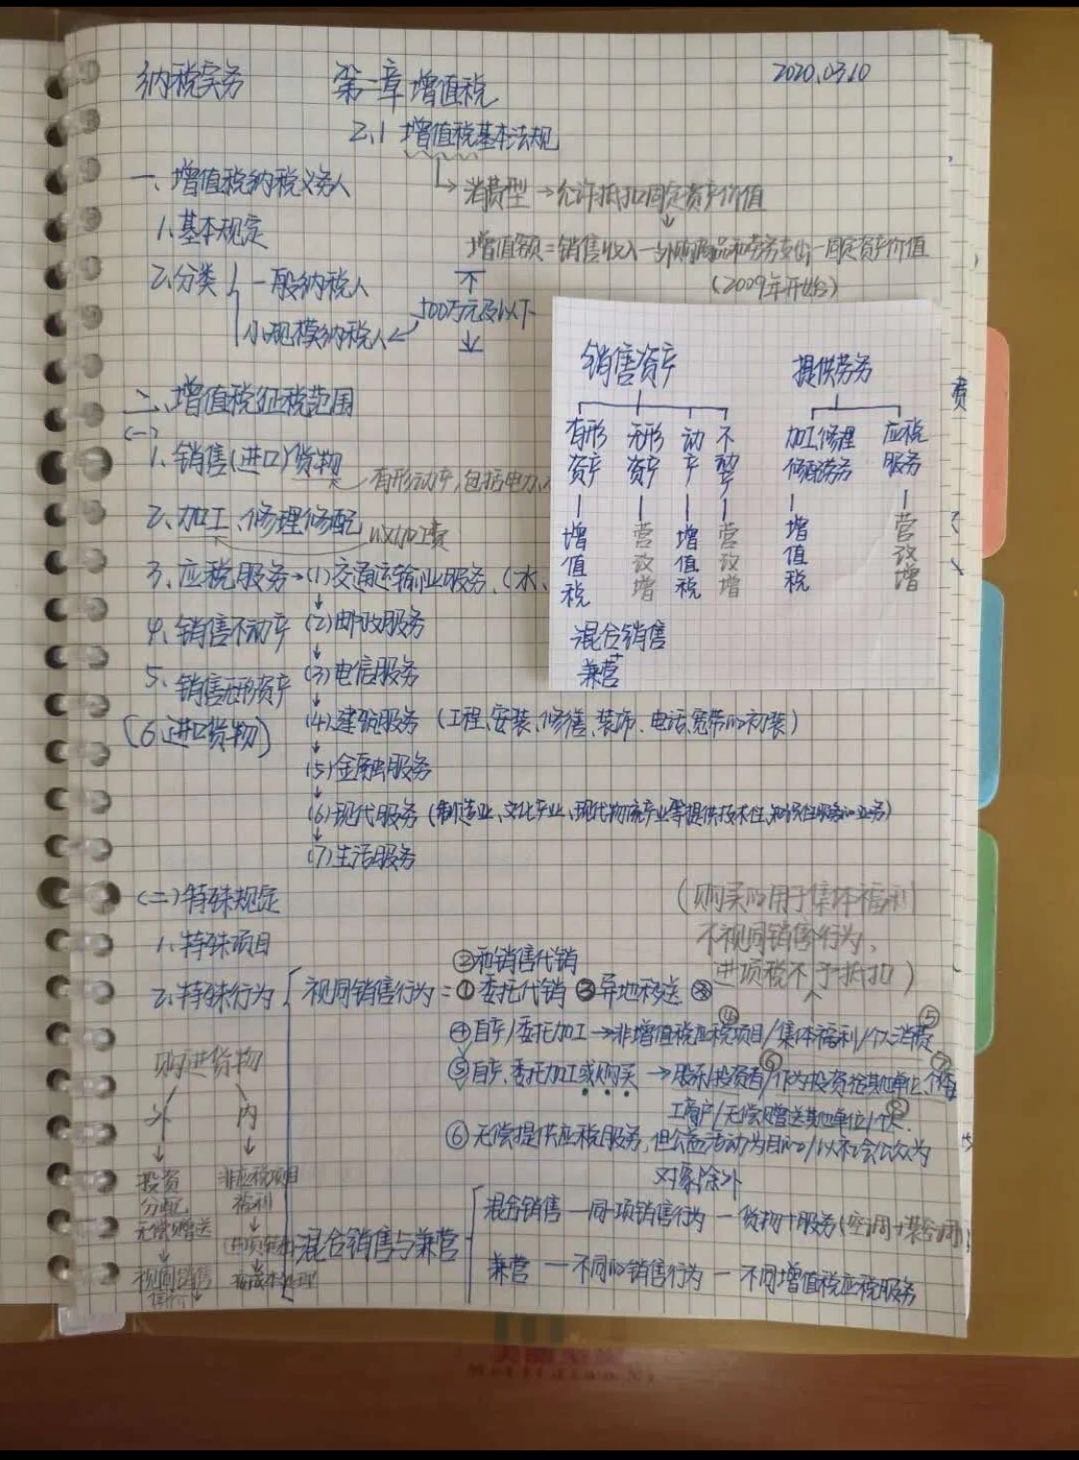 纳税实务 第一章 增值税 2020.03.10
2.1 增值税基本法规
一、增值税纳税义务人
↳消费型→允许抵扣固定资产价值
1.基本规定
增值额=销售收入-外购商品和劳务支出-固定资产价值
(2009年开始)
2.分类 一般纳税人
小规模纳税人← 500万元及以下
二、增值税征税范围
(一)
1.销售(进口)货物
有形动产,包括电力、
2.加工、修理修配
以加工费
3.应税服务→(1)交通运输业服务.(水、
4.销售不动产
(2)邮政服务
5.销售无形资产
(3)电信服务
(6.进口货物)
(4)建筑服务(工程、安装、修缮、装饰、电话宽带的初装)
(5)金融服务
(6)现代服务(制造业、文化产业、现代物流产业等提供技术性、知识性服务的业务)
(7)生活服务
销售资产
有形资产—增值税
无形资产—营改增
动产—增值税
不动产—营改增
提供劳务
加工修理修配劳务—增值税
应税服务—营改增
混合销售
+
兼营
费
(二)特殊规定
1.特殊项目
(购买的用于集体福利
不视同销售行为,
进项税不予抵扣)
2.特殊行为
视同销售行为=①委托代销 ③异地移送
②和销售代销
④自产/委托加工→非增值税应税项目/集体福利/个人消费
⑤自产、委托加工或购买→股东投资者/作为投资给其他单位、个体
工商户/无偿赠送其他单位/个人.
⑥无偿提供应税服务,但公益活动为目的/以社会公众为
对象除外
购进货物
外 内
投资
分配
无偿赠送
视同销售
非应税项目
福利
混合销售与兼营
混合销售—同一项销售行为—货物+服务(空调+装空调)
兼营—不同的销售行为—不同增值税应税服务